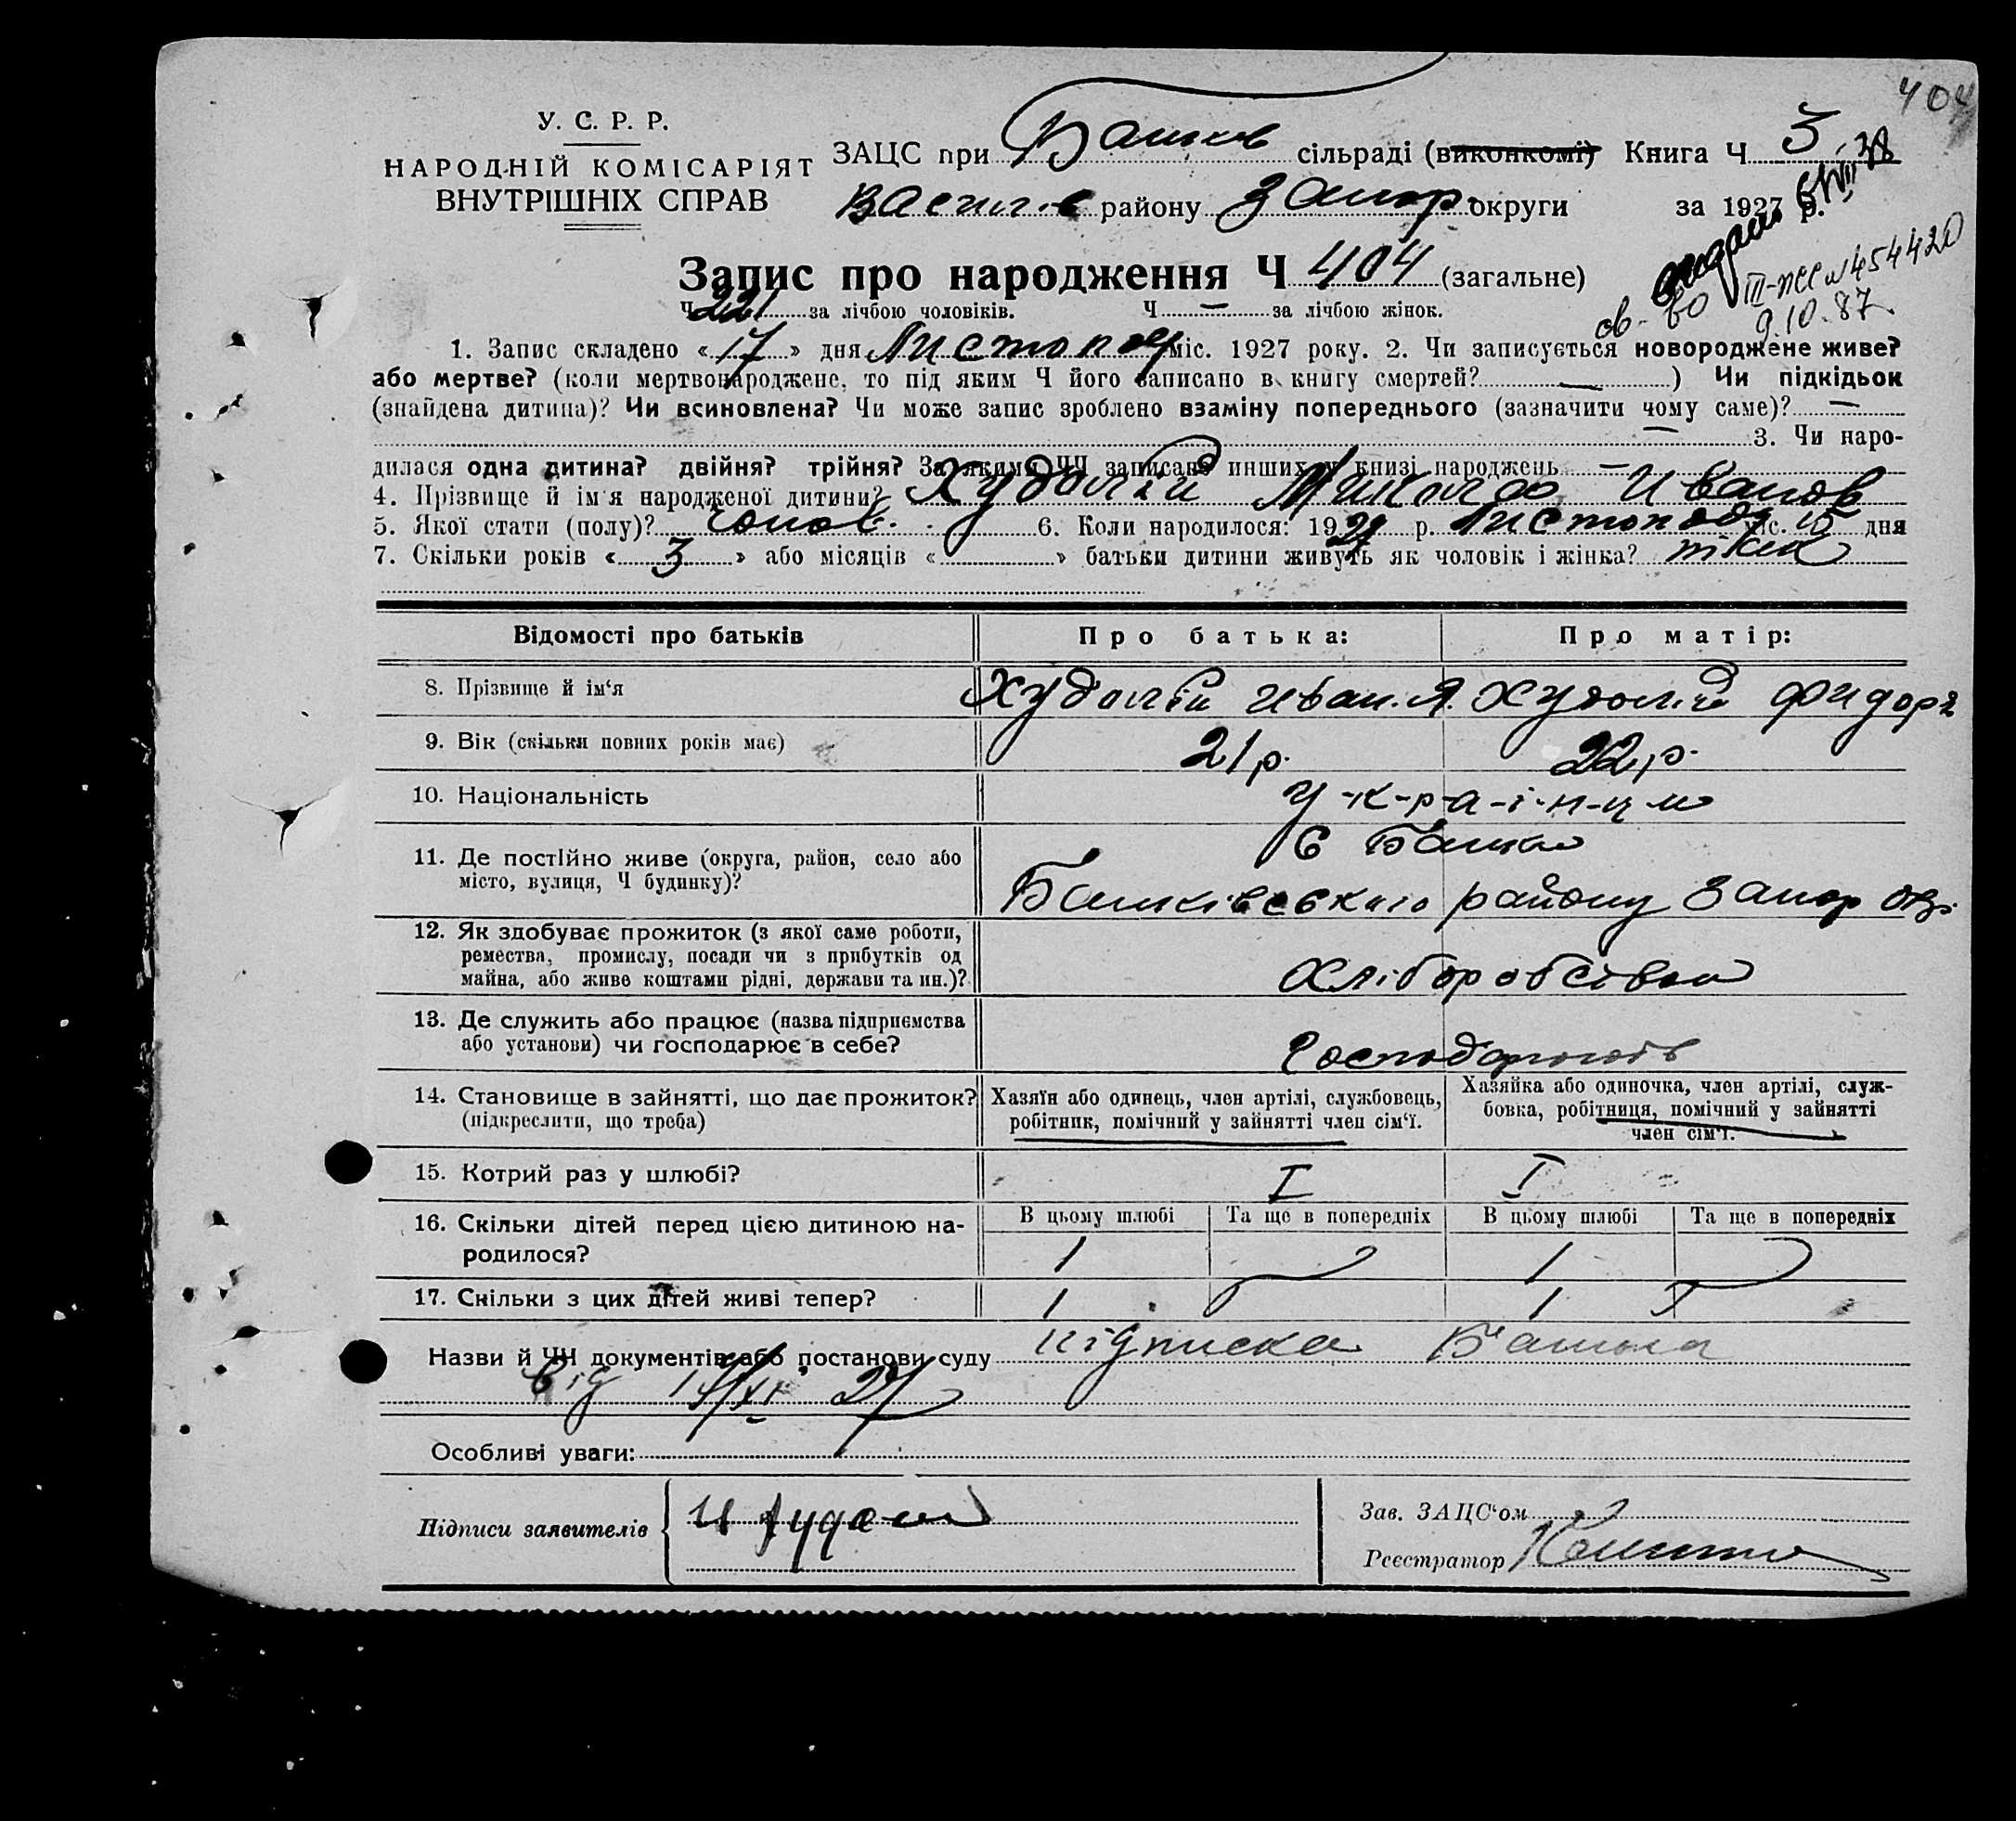 404
У. С. Р. Р.
НАРОДНІЙ КОМІСАРІЯТ
ВНУТРІШНІХ СПРАВ
ЗАЦС при Башков сільраді (виконкомі) Книга Ч 3
Василів району Запор. округи за 1927 р.
Запис про народження Ч 404 (загальне)
св-во III-ПСС №454420
9.10.87
Ч 221 за лічбою чоловіків. Ч — за лічбою жінок.
1. Запис складено «17» дня Листопад міс. 1927 року. 2. Чи записується новороджене живе?
або мертве? (коли мертвонароджене, то під яким Ч його записано в книгу смертей? — ) Чи підкідьок
(знайдена дитина)? Чи всиновлена? Чи може запис зроблено взаміну попереднього (зазначити чому саме)? —
— 3. Чи наро-
дилася одна дитина? двійня? трійня? За якими ЧЧ записано инших у книзі народжень —
4. Прізвище й ім'я народженої дитини? Худолій Микола Иванов
5. Якої стати (полу)? чолов. 6. Коли народилося: 1927 р. Листопада міс. 15 дня
7. Скільки років «3» або місяців « » батьки дитини живуть як чоловік і жінка?
Відомості про батьків Про батька: Про матір:
8. Прізвище й ім'я Худолій Иван. Я. Худолій Фидора
9. Вік (скільки повних років має) 21 р. 22 р.
10. Національність У-к-р-а-ї-н-ц и
11. Де постійно живе (округа, район, село або
місто, вулиця, Ч будинку)?
Башківського району Запор окр.
12. Як здобуває прожиток (з якої саме роботи,
ремества, промислу, посади чи з прибутків од
майна, або живе коштами рідні, держави та ин.)? Хліборобство
13. Де служить або працює (назва підприємства
або установи) чи господарює в себе? Господарюють
14. Становище в зайнятті, що дає прожиток?
(підкреслити, що треба)
Хазяїн або одинець, член артілі, службовець,
робітник, помічний у зайнятті член сім'ї.
Хазяйка або одиночка, член артілі, служ-
бовка, робітниця, помічний у зайнятті
член сім'ї.
15. Котрий раз у шлюбі? I I
16. Скільки дітей перед цією дитиною на-
родилося?
В цьому шлюбі Та ще в попередніх В цьому шлюбі Та ще в попередніх
1 1
17. Скільки з цих дітей живі тепер? 1 1
Назви й ЧЧ документів або постанови суду підписка Батька
від 17/XI 27
Особливі уваги:
Підписи заявителів
Зав. ЗАЦС'ом
Реєстратор